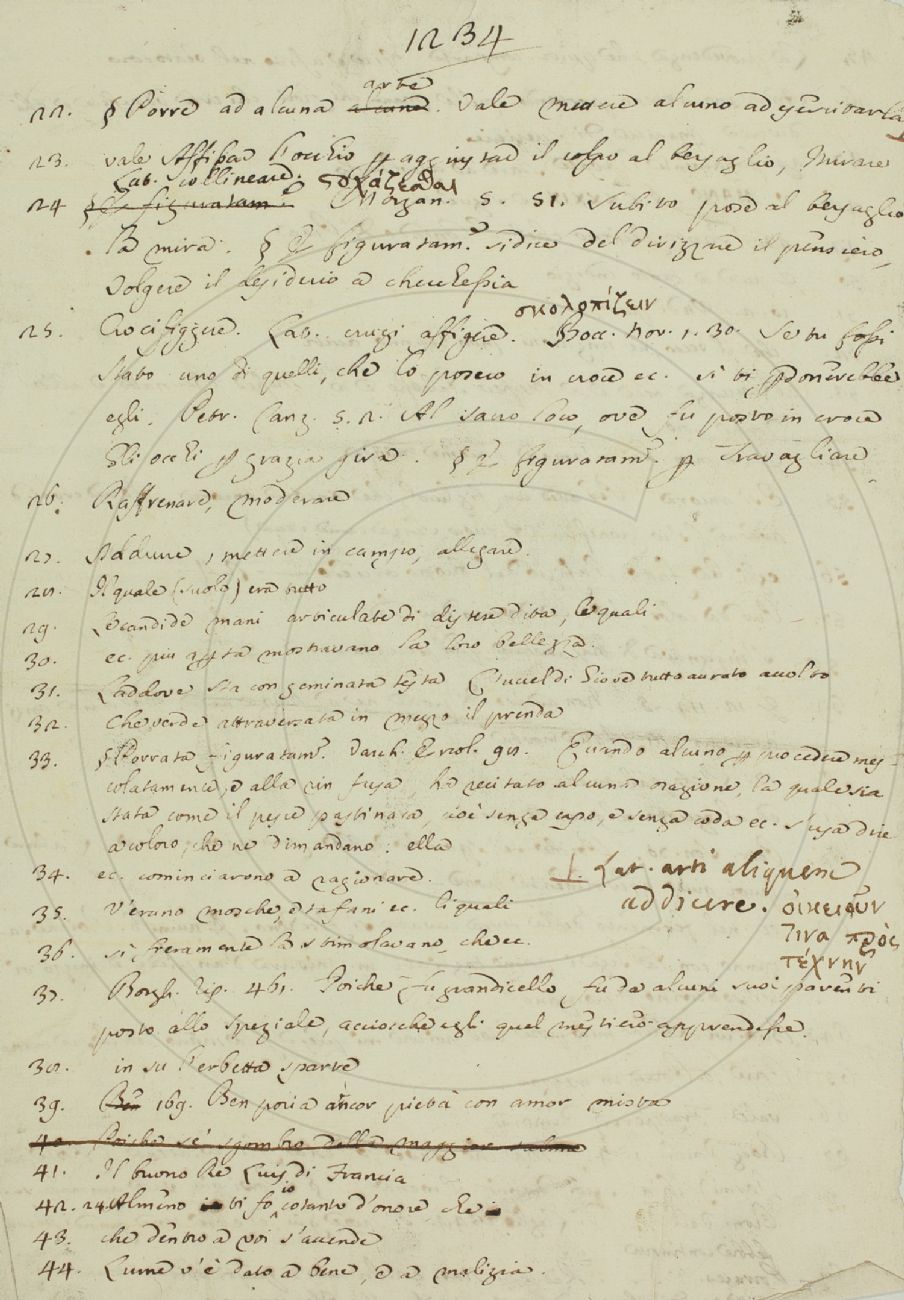 1234
arte
22. § Porre ad alcuna alcuna. Vale mettere alcuno ad esercitarla
23. vale Affissar l'occhio p aggiustare il colpo al bersaglio, Mirare
Lat. collineare. στοχάζεσθαι
24 § E figuratam. Morgan. S. 51. subito pose al bersaglio
la mira. § E figuratam. si dice del dirizzare il pensiero,
volgere il desiderio a checchessia
σκολοπίζειν
25. Crocifiggere. Lat. cruci affigere. Bocc. nov. 1. 30. Se tu fossi
stato uno di quelli, che lo posero in croce ec. si ti pdonerebbe
egli. Petr. Canz. 5. 2. Al sacro loco, ove fu posto in croce
Gli occhi p grazia gira. § E figuratam. p Travagliare
26. Raffrenare, moderare
27. Addurre, mettere in campo, allegare.
28. Il quale (suolo) era tutto
29. Le candide mani articulate di distese dita, le quali
30. ec. più aperta mostravano la loro bellezza.
31. Laddove sta con geminata testa Quciel di Giove tutto aurato avolto
32. che verde attraversata in mezzo il prenda
33. § Porrata figuratam. Varch. Ercol. 91. Quando alcuno p procedere mes-
colatamente, e alla rinfusa, ha recitato alcuna orazione, la quale sia
stata come il pesce pastinaca, cioè senza capo, e senza coda ec. s'usa dire
a coloro, che ne dimandano: ella
34. ec. cominciarono a ragionare.
⊥. Lat. arti aliquem
35. V'erano mosche, e tafani ec. li quali
addicere. οἰκειοῦν
36. sì fieramente la stimolavano, che ec.
τινα πρὸς
τέχνην
37. Borgh. Rip. 461. Poichè fu grandicello fu da alcuni suoi parenti
posto allo speziale, acciocchè egli quel mestiero apprendesse.
38. in su l'erbetta sparte
39. Ben 169. Ben poria ancor pietà con amor mista
40. Poichè se' sgombro della maggior salma
41. Il buono Re Luis di Francia
42. 24. Almeno vi fo io cotanto d'onore che
43. che dentro a voi s'accende
44. Lume v'è dato a bene, e a malizia.